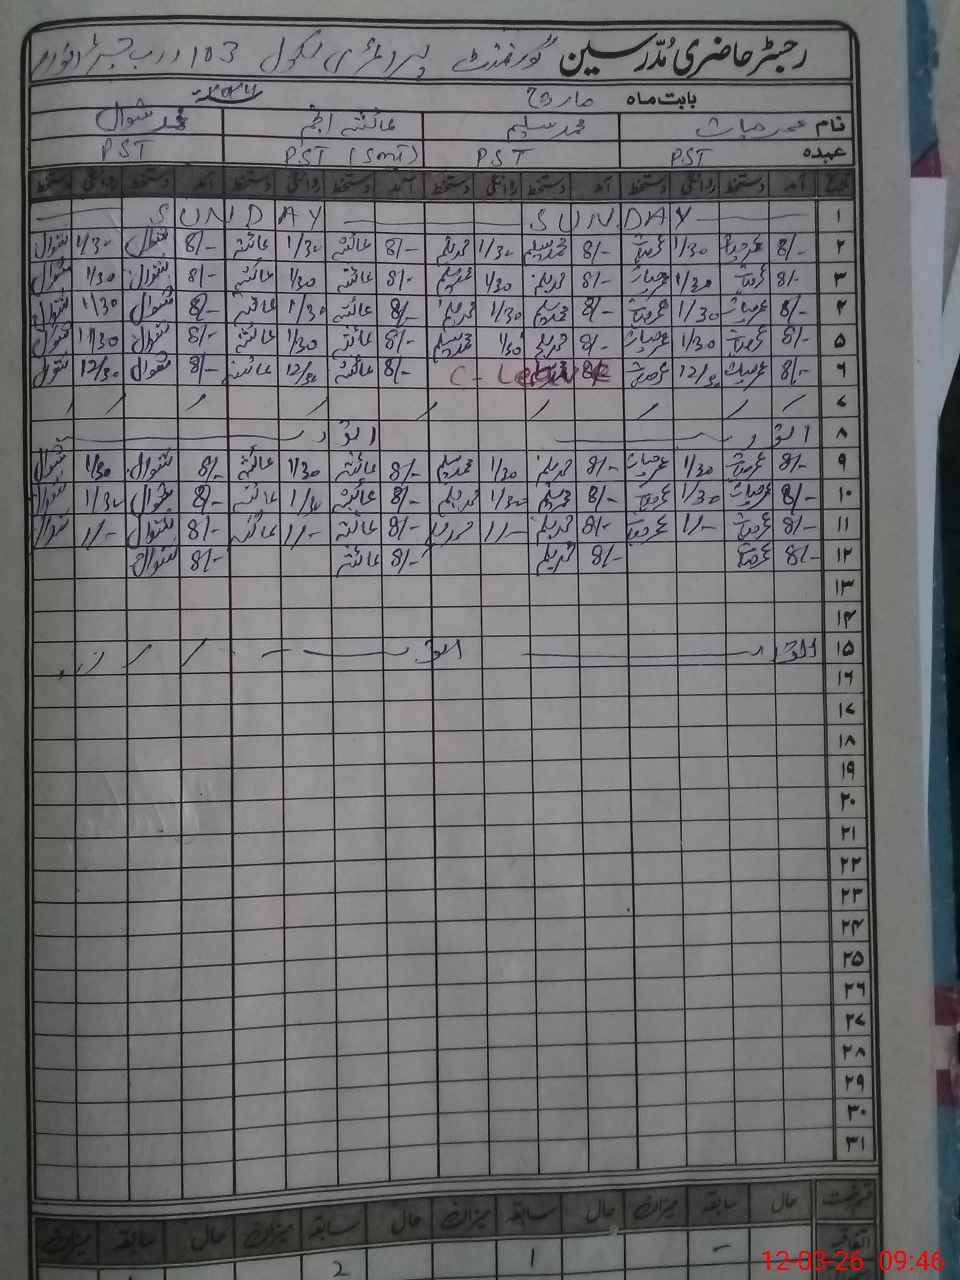 رجسٹر حاضری مُدّرسین گورنمنٹ پرائمری سکول 103 ر ب
بابت ماہ مارچ
نام عمر حیات محمد سلیم عائشہ انجم محمد شوال
عہدہ PST PST PST (SMT) PST
تاریخ آمد دستخط روانگی دستخط آمد دستخط روانگی دستخط آمد دستخط روانگی دستخط آمد دستخط روانگی دستخط
۱ SUNDAY SUNDAY
۲ 8/- عمر حیات 1/30 عمر حیات 8/- محمد سلیم 1/30 محمد سلیم 8/- عائشہ 1/30 عائشہ 8/- شوال 1/30 شوال
۳ 8/- عمر حیات 1/30 عمر حیات 8/- محمد سلیم 1/30 محمد سلیم 8/- عائشہ 1/30 عائشہ 8/- شوال 1/30 شوال
۴ 8/- عمر حیات 1/30 عمر حیات 8/- محمد سلیم 1/30 محمد سلیم 8/- عائشہ 1/30 عائشہ 8/- شوال 1/30 شوال
۵ 8/- عمر حیات 1/30 عمر حیات 8/- محمد سلیم 1/30 محمد سلیم 8/- عائشہ 1/30 عائشہ 8/- شوال 1/30 شوال
۶ 8/- عمر حیات 12/30 عمر حیات C-Leave 8/- عائشہ 12/30 عائشہ 8/- شوال 12/30 شوال
۷
۸ اتوار اتوار
۹ 8/- عمر حیات 1/30 عمر حیات 8/- محمد سلیم 1/30 محمد سلیم 8/- عائشہ 1/30 عائشہ 8/- شوال 1/30 شوال
۱۰ 8/- عمر حیات 1/30 عمر حیات 8/- محمد سلیم 1/30 محمد سلیم 8/- عائشہ 1/30 عائشہ 8/- شوال 1/30 شوال
۱۱ 8/- عمر حیات 1/- عمر حیات 8/- محمد سلیم 1/- محمد سلیم 8/- عائشہ 1/- عائشہ 8/- شوال 1/- شوال
۱۲ 8/- عمر حیات 8/- محمد سلیم 8/- عائشہ 8/- شوال
۱۳
۱۴
۱۵ اتوار اتوار
۱۶
۱۷
۱۸
۱۹
۲۰
۲۱
۲۲
۲۳
۲۴
۲۵
۲۶
۲۷
۲۸
۲۹
۳۰
۳۱
قسم رخصت حال سابقہ میزان حال سابقہ میزان حال سابقہ میزان حال سابقہ میزان
اتفاقیہ - 1 2 1
12-03-26 09:46